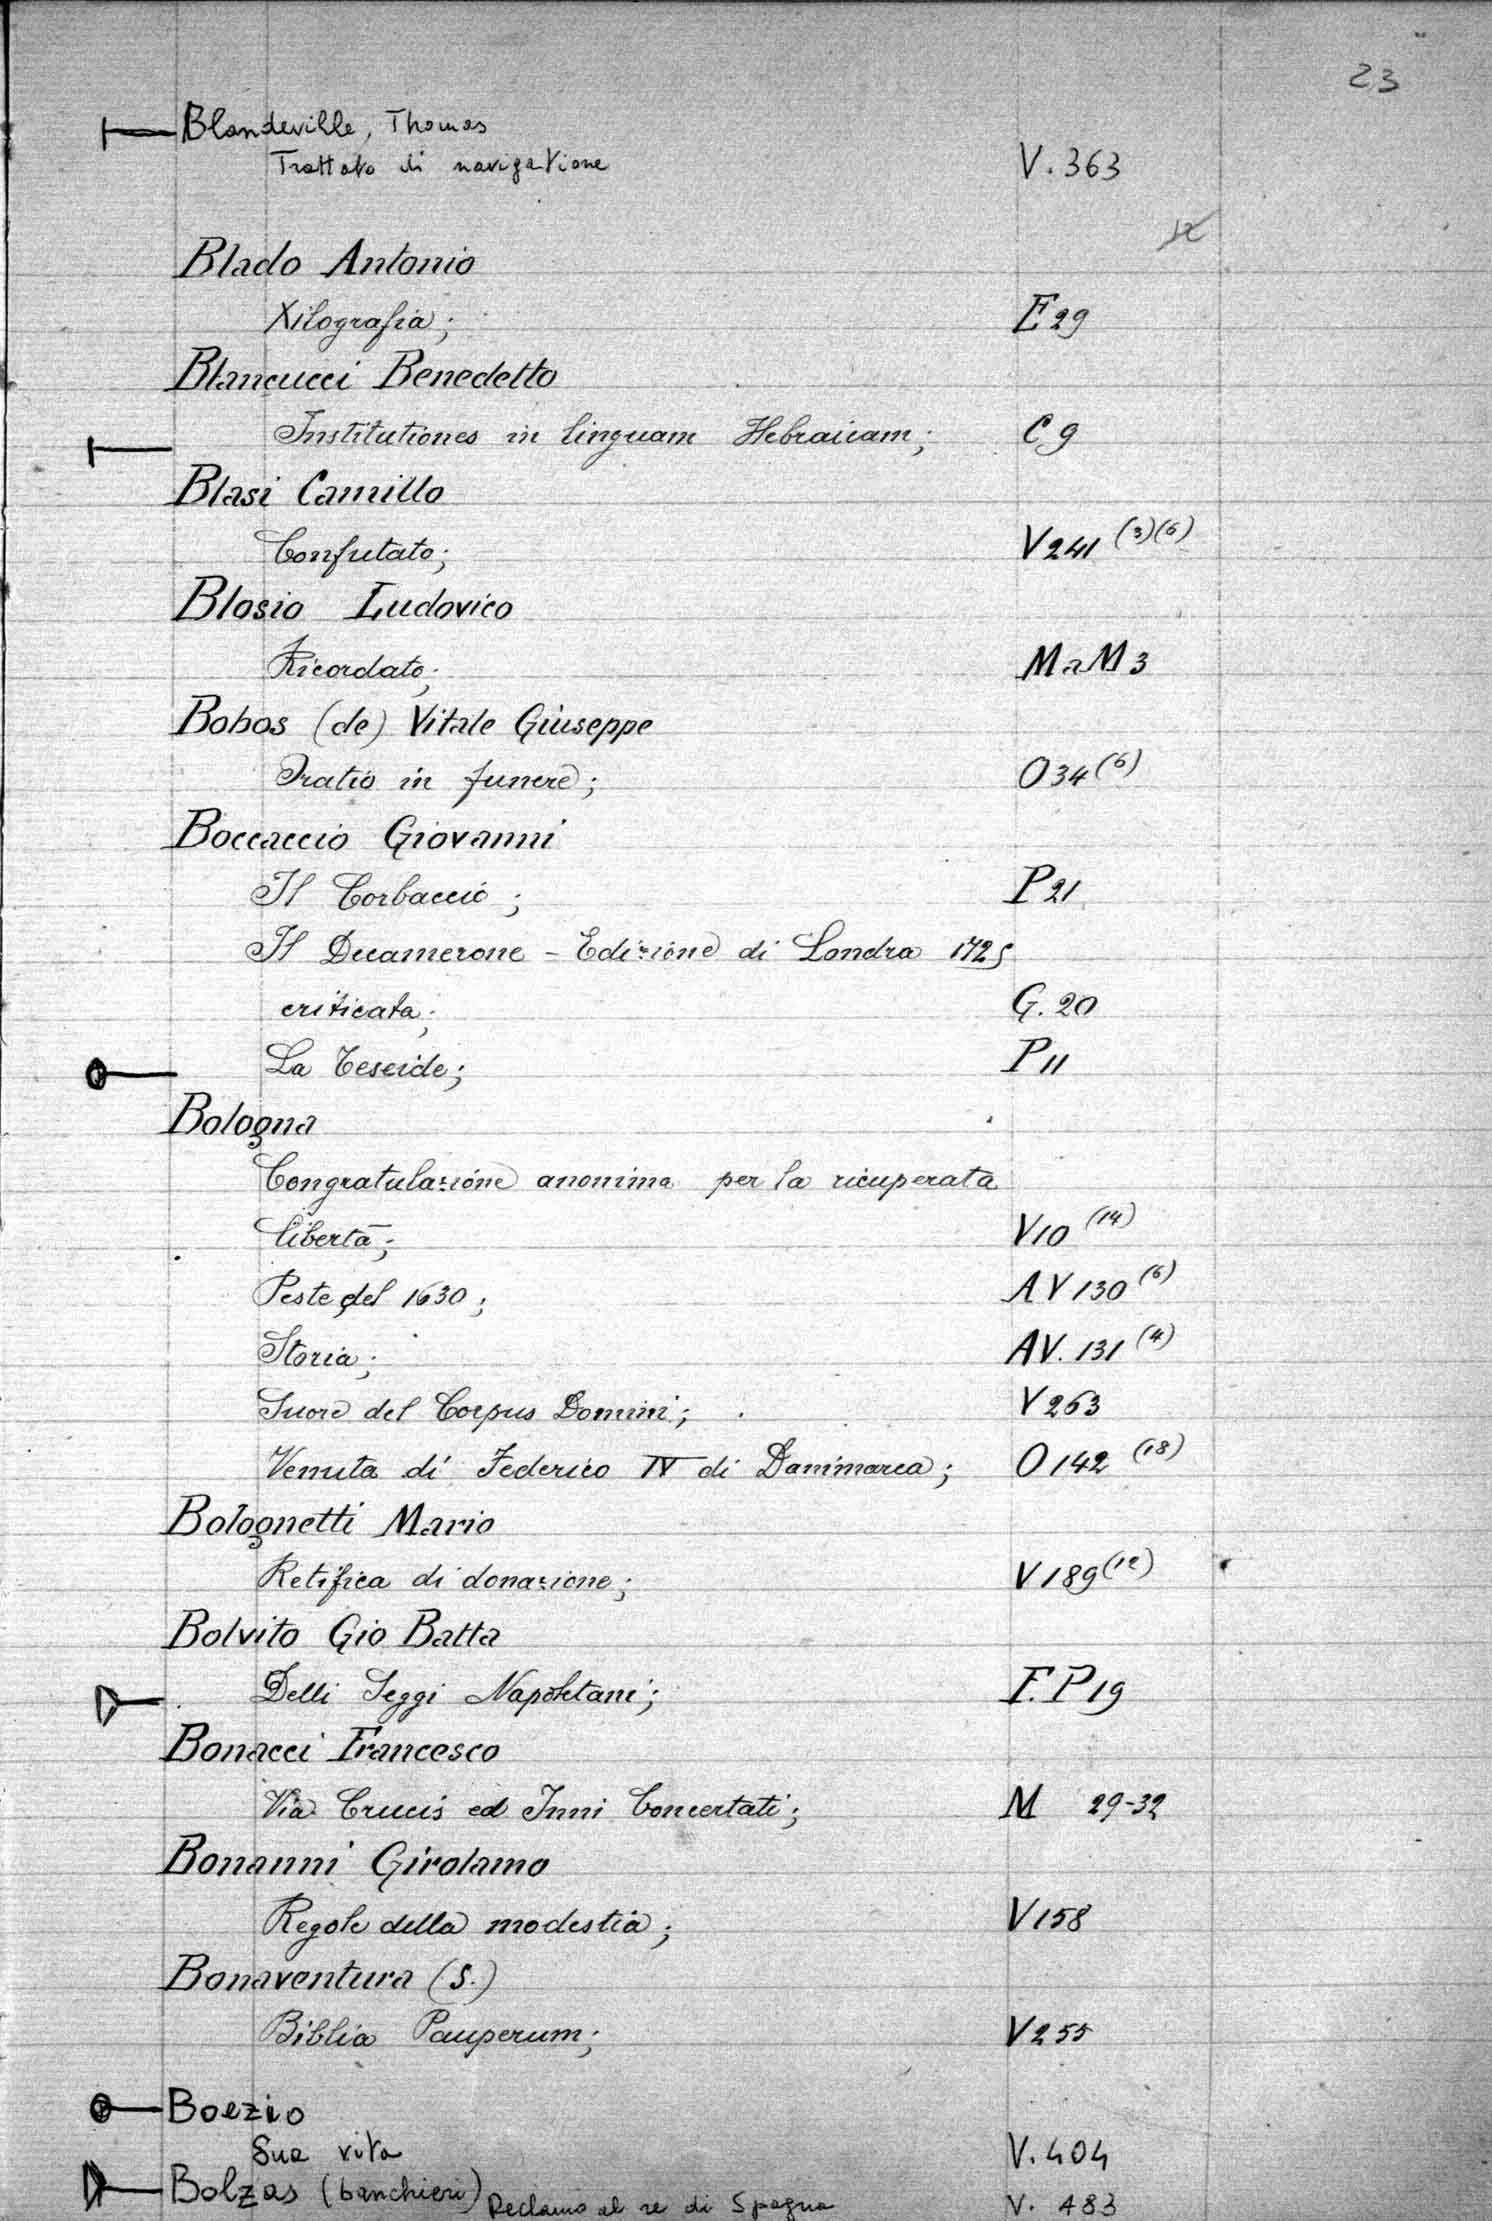 23
Blandeville, Thomas
Trattato di navigatione V. 363
12
Blado Antonio
Xilografia; E 29
Blancucci Benedetto
Institutiones in linguam Hebraicam; C 9
Blasi Camillo
Confutato; V 241 (3)(6)
Blosio Ludovico
Ricordato; MaM 3
Bobos (de) Vitale Giuseppe
Oratio in funere; O 34 (6)
Boccaccio Giovanni
Il Corbaccio; P 21
Il Decamerone - Edizione di Londra 1725
criticata; G. 20
La Teseide; P 11
Bologna
Congratulazione anonima per la ricuperata
libertà; V 10 (14)
Peste del 1630; AV 130 (6)
Storia; AV. 131 (4)
Suore del Corpus Domini; V 263
Venuta di Federico IV di Danimarca; O 142 (18)
Bolognetti Mario
Retifica di donazione; V 189 (12)
Bolvito Gio Batta
Delli Seggi Napoletani; F. P 19
Bonacci Francesco
Via Crucis ed Inni Concertati; M 29-32
Bonanni Girolamo
Regole della modestia; V 158
Bonaventura (S.)
Biblia Pauperum; V 255
Boezio
Sua vita V. 404
Bolzas (banchieri) Reclamo al re di Spagna V. 483